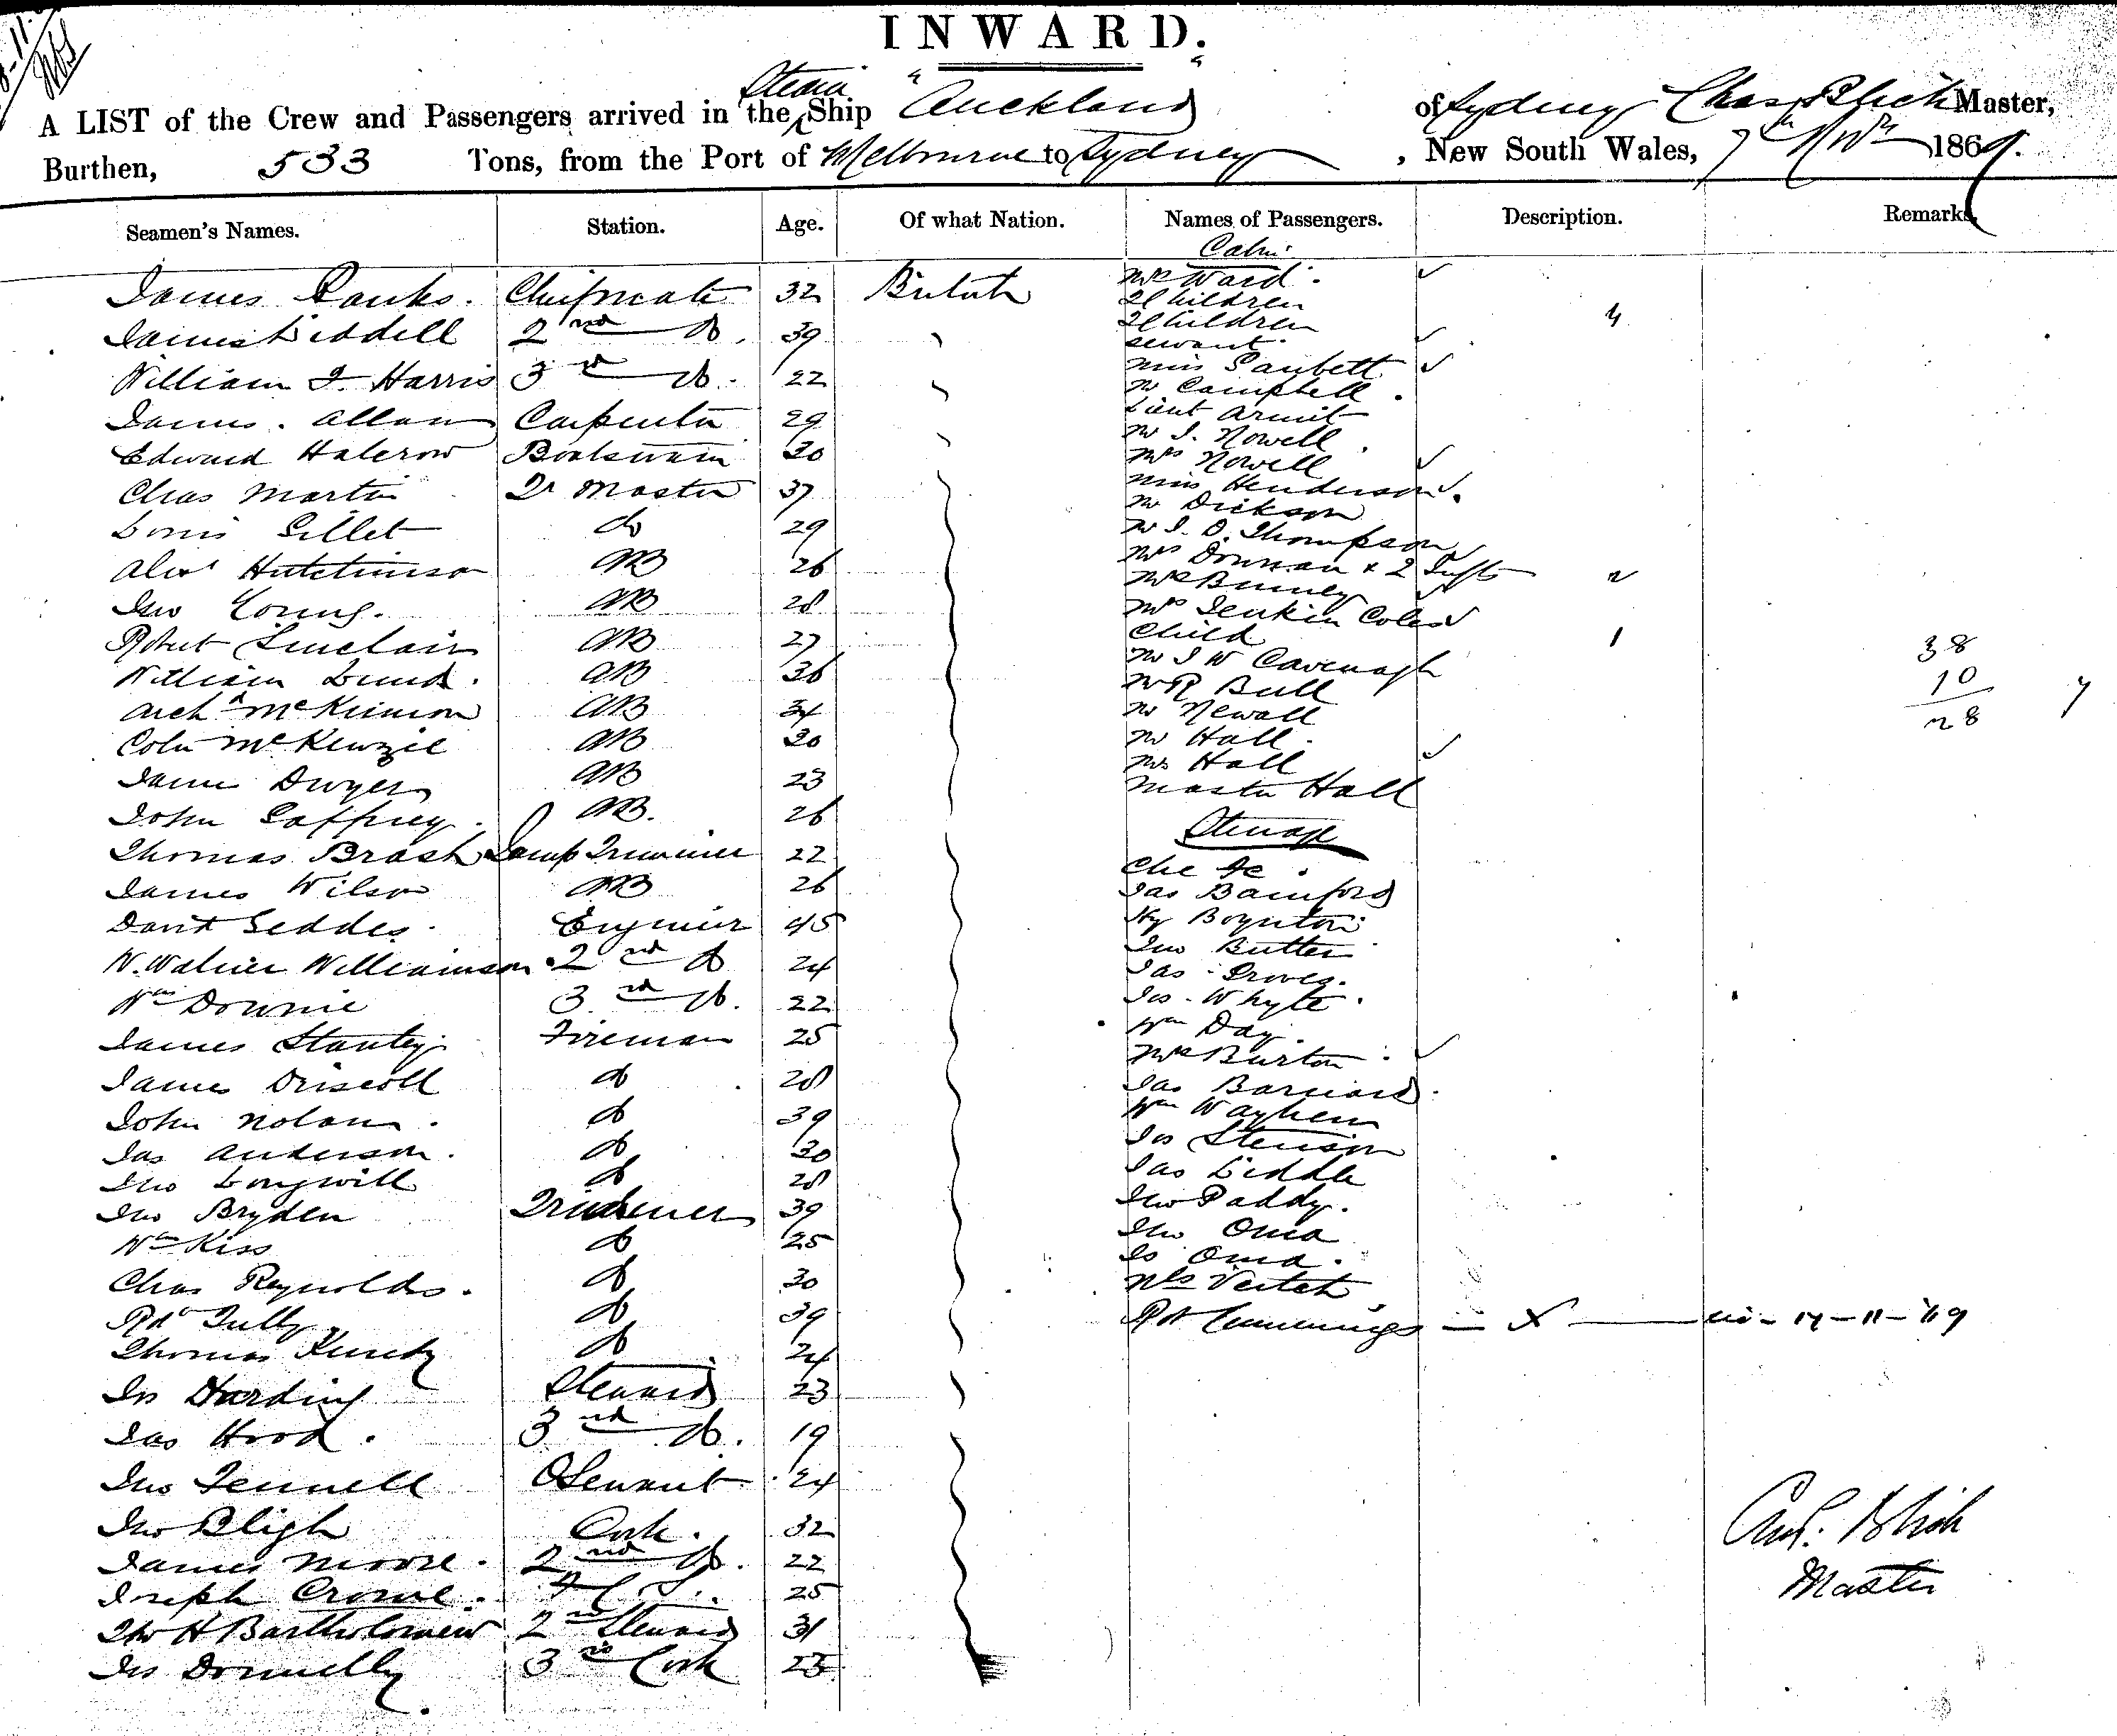 INWARD.
A LIST of the Crew and Passengers arrived in the Steam Ship "Auckland" of Sydney Chas Blich Master,
Burthen, 533 Tons, from the Port of Melbourne to Sydney, New South Wales, 7th Novr 1869.
Seamen's Names. Station. Age. Of what Nation. Names of Passengers. Description. Remarks.
James Banks. Chief mate 32 British
James Liddell 2nd do. 39
William J. Harris 3rd do. 22
James Allan Carpenter 29
Edward Halcrow Boatswain 30
Chas Martin Qr Master 37
Louis Gillet do 29
Alexr Hutchinson AB 26
Jno Young. AB 28
Robert Sinclair AB 27
William Lund. AB 36
Archd McKinnon AB 34
Colin McKenzie AB 30
James Dwyer AB 23
John Gaffney. AB. 26
Thomas Brash Lamp Trimmer 22
James Wilson AB 26
David Geddes. Engineer 45
W. Williamson 2nd do 24
Wm Downie 3rd do. 22
James Stanley Fireman 25
James Driscoll do 28
John Nolan. do 39
Jas Anderson. do 30
Jno Longwill do 28
Jno Bryden Trimmer 39
Wm Kiss do 25
Chas Reynolds. do 30
Rd Tully do 39
Thomas do 24
Js Harding Steward 23
Jas Hood. 3rd do. 19
Jno Fennell Servant 24
Jno Bligh Cook. 32
James Moore. 2nd do. 22
Joseph Crowe. 25
H Bartholomew 2nd Steward 31
Js Donnelly 3rd Cook 23
Cabin
Mrs Ward.
2 Children
2 Children 4
servant.
Miss Garbett
Mr Campbell.
Lieut Armit
Mr J. Nowell.
Mrs Nowell
Miss Henderson.
Mr Dickson
Mr J. D. Thompson
Mrs Donnan & 2 Infts 2
Mrs Binney
Mrs Jenkin Coles
Child 1
Mr J W Cavenagh
Mr R Bull
Mr Newall
Mr Hall.
Mrs Hall
Master Hall
38
10
28
Steerage
Che Ae.
Jas Bamford
Hy Boynton
Jno Butter
Jas Groves.
Js. Whyte.
Wm Day.
Mrs Burton
Jas Barnard.
Wm Wayhem
Js Stenson
Jas Liddle
Jno Paddy.
Jno Oma
Js Oma.
Nls Vertet
Rd Cummings — X — 17-11-'69
Chas. Blich
Master